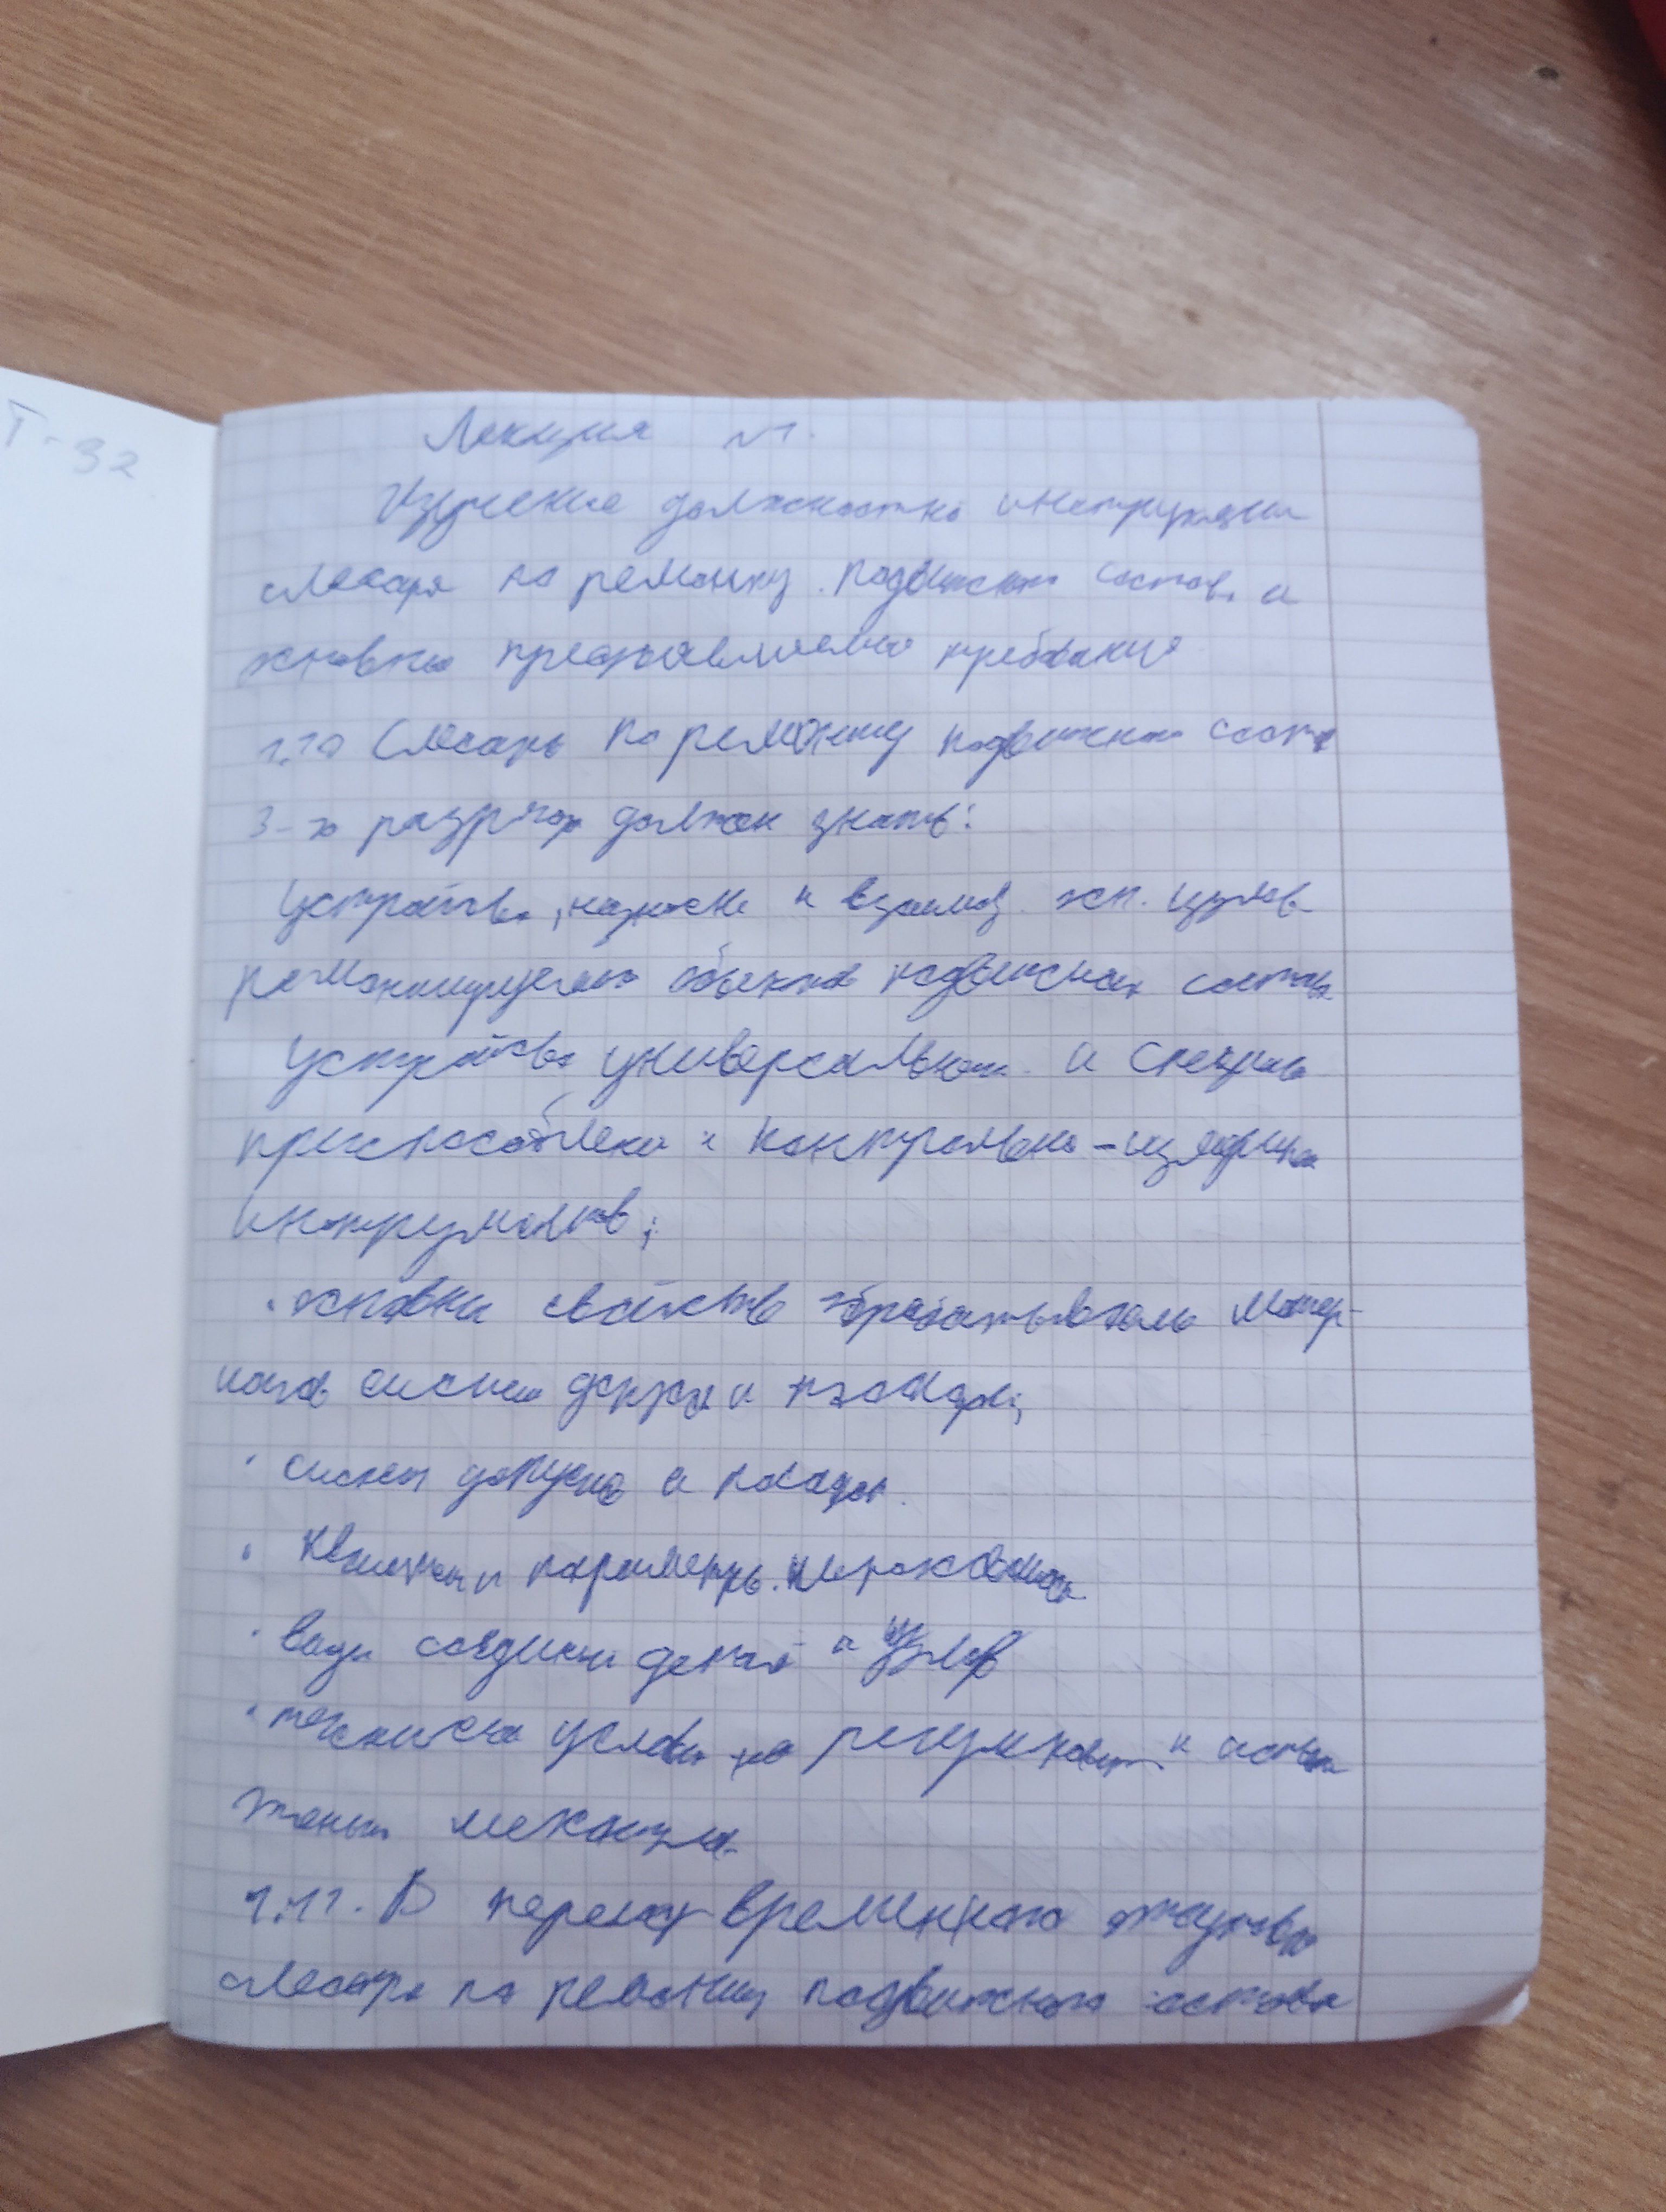 Т-32
Лекция №1.
Изучение должностно инструкции
слесаря по ремонту подвижном состав. и
основны предъявляемые требования
1.10 Слесарь по ремонту подвижного соста
3-го разряда должен знать:
Устройства, назначен и взаимод. осн. узлов
ремонтируемых объектов подвижного состава
Устройства универсальных и специаль
приспособлени и контрольно-измерите
инструментов;
· основны свойств обрабатываемы матер-
иалов систем допуска и посадок;
· систем допусков и посадок.
· Квалитеты и параметры шероховатос
· виды соединени деталей и узлов
· техническ услови на регулировку и испы
тания механизм.
1.11. В период временного отсутств
слесаря по ремонту подвижного состава